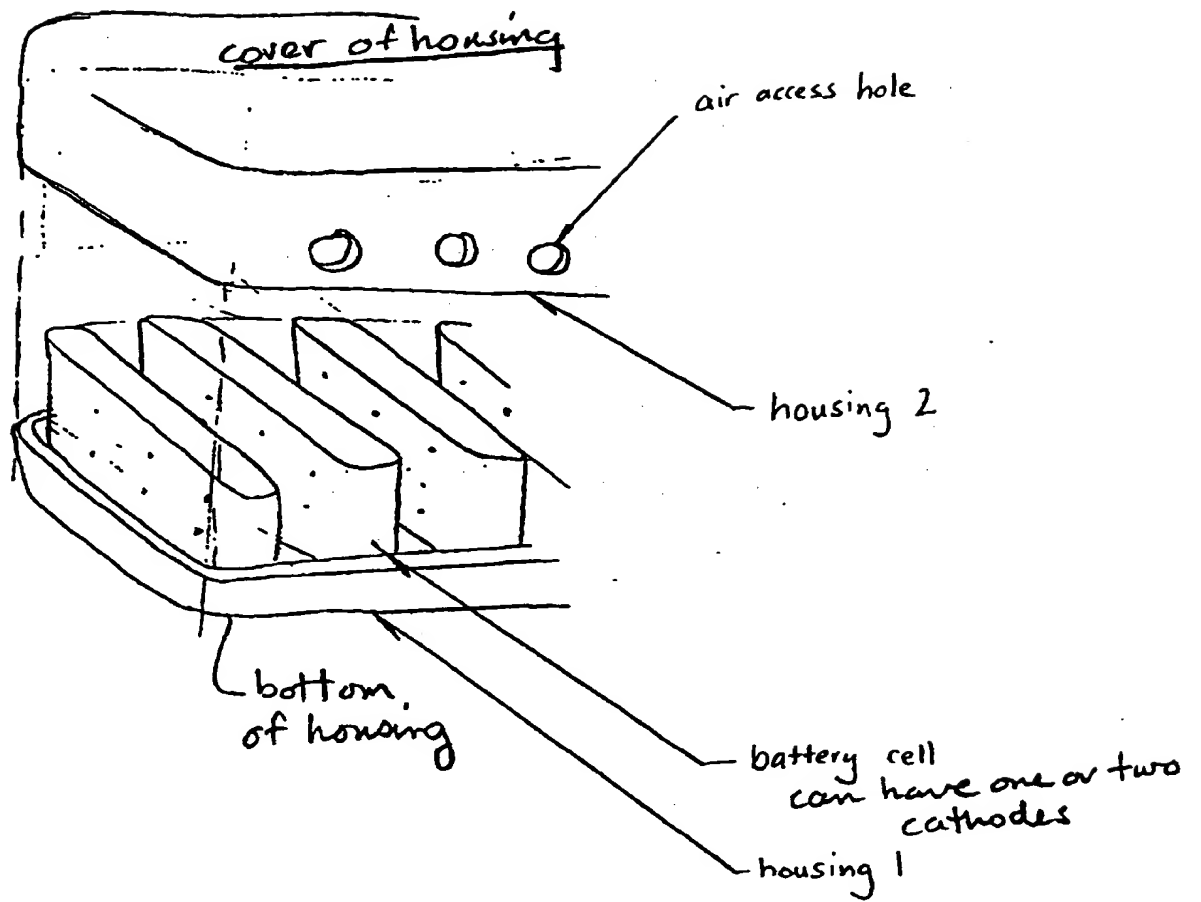 cover of housing
air access hole
housing 2
bottom
of housing
battery cell
can have one or two
cathodes
housing 1